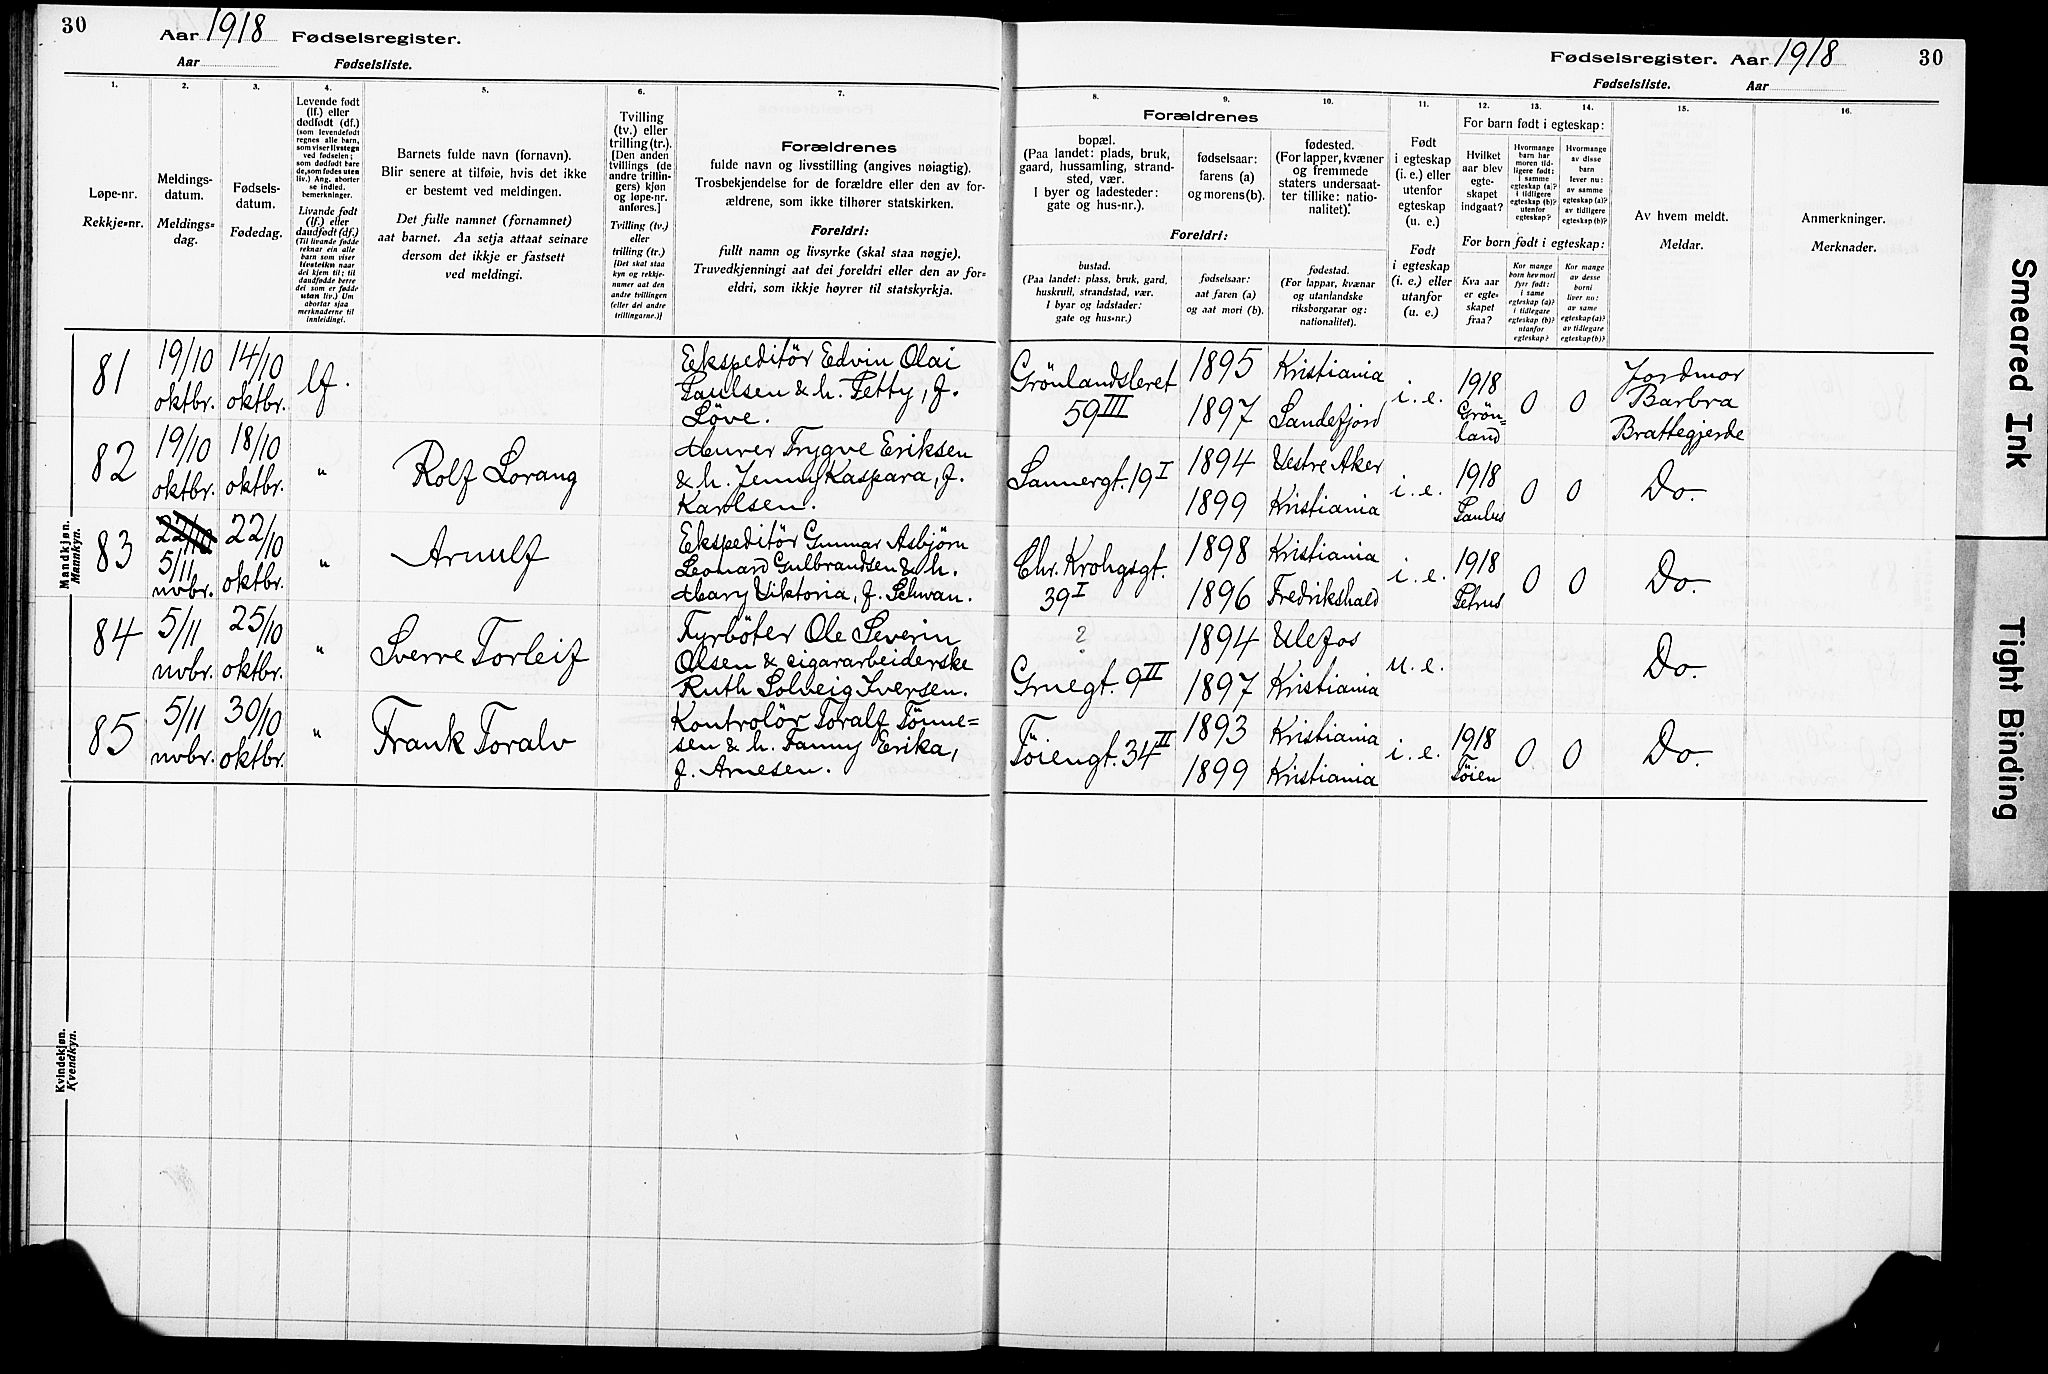 30
Aar 1918 Fødselsregister.
Aar Fødselsliste.
Fødselsregister. Aar 1918
30
Fødselsliste. Aar
1.
Løpe-nr.
Rekkje-nr.
2.
Meldings-
datum.
Meldings-
dag.
3.
Fødsels-
datum.
Fødedag.
4.
Levende født
(lf.) eller
dødfødt (df.)
(som levendefødt
regnes alle barn,
som viser livstegn
ved fødselen;
som dødfødt bare
de, som fødes uten
liv.) Ang. aborter
se indled.
bemerkninger.
Livande født
(lf.) eller
daudfødt (df.)
(Til livande fødde
reknar ein alle
barn som viser
livsteikn naar
dei kjem til; til
daudfødde berre
dei som er fødde
utan liv.) Um
abortar sjaa
merknaderne til
innleidingi.
5.
Barnets fulde navn (fornavn).
Blir senere at tilføie, hvis det ikke
er bestemt ved meldingen.
Det fulle namnet (fornamnet)
aat barnet. Aa setja attaat seinare
dersom det ikkje er fastsett
ved meldingi.
6.
Tvilling
(tv.) eller
trilling (tr.).
[Den anden
tvillings (de
andre trillin-
gers) kjøn
og løpe-nr.
anføres.]
Tvilling (tv.)
eller
trilling (tr.)
[Det skal staa
kyn og rekkje-
numer aat den
andre tvillingen
(eller dei andre
trillingarne.)]
7.
Forældrenes
fulde navn og livsstilling (angives nøiagtig).
Trosbekjendelse for de forældre eller den av for-
ældrene, som ikke tilhører statskirken.
Foreldri:
fullt namn og livsyrke (skal staa nøgje).
Truvedkjenningi aat dei foreldri eller den av for-
eldri, som ikkje høyrer til statskyrkja.
8.
9.
10.
Forældrenes
bopæl.
(Paa landet: plads, bruk,
gaard, hussamling, strand-
sted, vær.
I byer og ladesteder:
gate og hus-nr.).
fødselsaar:
farens (a)
og morens (b).
fødested.
(For lapper, kvæner
og fremmede
staters undersaat-
ter tillike: natio-
nalitet).
Foreldri:
bustad.
(Paa landet: plass, bruk, gard,
huskrull, strandstad, vær.
I byar og ladstader:
gate og hus-nr.)
fødselsaar:
aat faren (a)
og aat mori (b).
fødestad.
(For lappar, kvænar
og utanlandske
riksborgarar og:
nationalitet).
11.
Født
i egteskap
(i. e.) eller
utenfor
egteskap
(u. e.)
Født
i egteskap
(i. e.) eller
utanfor
(u. e.)
12.
13.
14.
For barn født i egteskap:
Hvilket
aar blev
egte-
skapet
indgaat?
Hvormange
barn har
moren tid-
ligere født:
i samme
egteskap (a)?
i tidligere
egteskap (b)?
utenfor
egteskap?
Hvormange
av disse
barn
lever nu:
av samme
egteskap (a)?
av tidligere
egteskap (b)?
For born født i egteskap:
Kva aar
er egte-
skapet
fraa?
Kor mange
born hev mori
fyrr født:
i same
egteskap (a)?
i tidlegare
egteskap (b)?
utanfor
egteskap?
Kor mange
av desse
borni
liver nu:
av same
egteskap (a)?
av tidlegare
egteskap (b)?
15.
Av hvem meldt.
Meldar.
16.
Anmerkninger.
Merknader.
Mandkjøn.
Mannkyn.
81
19/10
oktbr.
14/10
oktbr.
lf.
Ekspeditör Edvin Olai
Paulsen & h. Petty, f.
Löve.
Grönlandsleret
59 III
1895
1897
Kristiania
Sandefjord
i. e.
1918
Grön-
land
0
0
Jordmor
Barbra
Brattegjerde
82
19/10
oktbr.
18/10
oktbr.
"
Rolf Lorang
Murer Trygve Eriksen
& h. Jenny Kaspara, f.
Karlsen.
Sannergt. 19 I
1894
1899
Vestre Aker
Kristiania
i. e.
1918
Paulus
0
0
Do.
83
22/10
5/11
novbr.
22/10
oktbr.
"
Arnulf
Ekspeditör Gunnar Asbjörn
Leonard Gulbrandsen & h.
Mary Viktoria, f. Schwan.
Chr. Krohgsgt.
39 I
1898
1896
Kristiania
Fredrikshald
i. e.
1918
Petrus
0
0
Do.
84
5/11
novbr.
25/10
oktbr.
"
Sverre Torleif
Fyrböter Ole Severin
Olsen & cigararbeiderske
Ruth Solveig Iversen.
?
Gruegt. 9 II
1894
1897
Ulefos
Kristiania
u. e.
Do.
85
5/11
novbr.
30/10
oktbr.
"
Frank Toralv
Kontrolör Toralf Tönne=
sen & h. Fanny Erika,
f. Arnesen.
Töiengt. 34 II
1893
1899
Kristiania
Kristiania
i. e.
1918
Töien
0
0
Do.
Kvindekjøn.
Kvendkyn.
Smeared Ink
Tight Binding